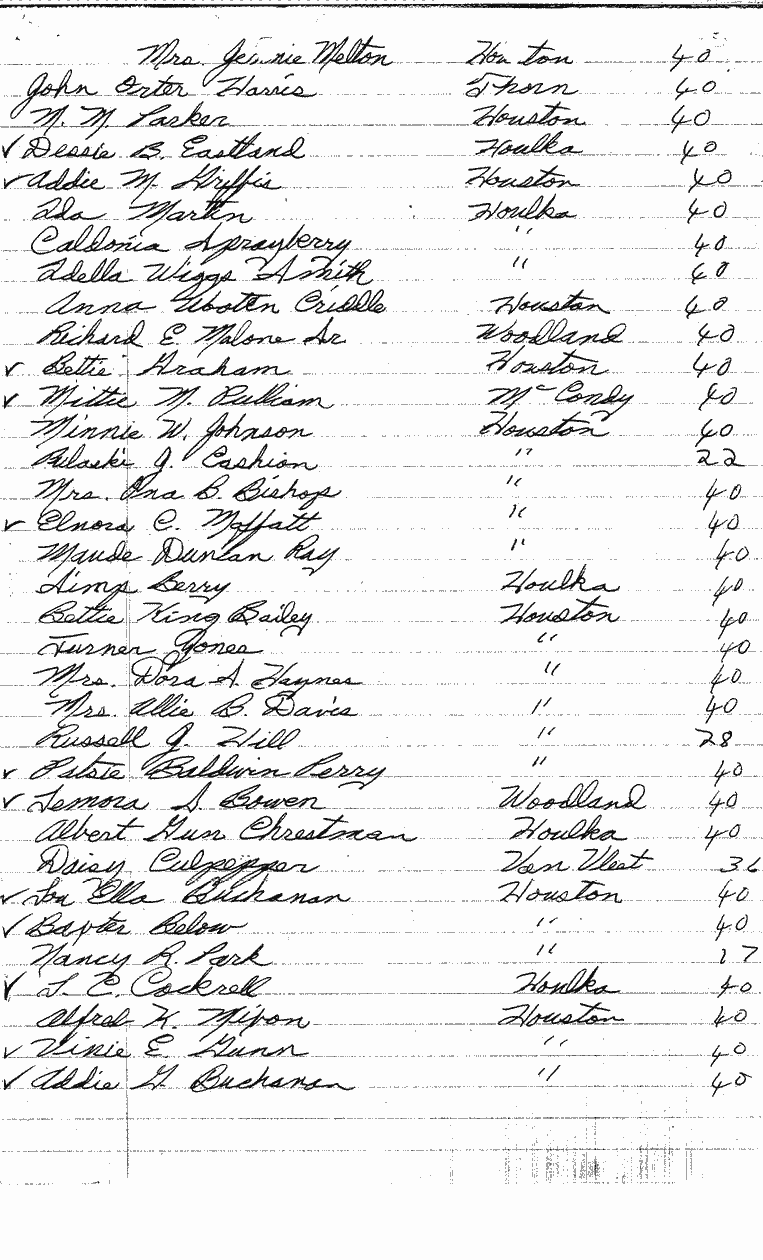 Mrs. Jennie Melton Houston 40
John Orter Harris Thorn 40
M. M. Parker Houston 40
✓ Dessie B. Eastland Houlka 40
✓ Addie M. Griffis Houston 40
Ida Martin Houlka 40
Caldonia Sprayberry " 40
Idella Wiggs Smith " 40
Anna Wooten Criddle Houston 40
Richard E Malone Sr Woodland 40
✓ Bettie Graham Houston 40
✓ Mittie M. Pulliam McCondy 40
Minnie W. Johnson Houston 40
Pulaski J. Cashion " 22
Mrs. Ona B. Bishop " 40
✓ Elnora C. Moffatt " 40
Maude Duncan Ray " 40
Simp Berry Houlka 40
Bettie King Bailey Houston 40
Turner Jones " 40
Mrs. Dora S. Haynes " 40
Mrs. Allie B. Davis " 40
Russell J. Hill " 28
✓ Patsie Baldwin Perry " 40
✓ Lemora S. Bowen Woodland 40
Albert Gun Chrestman Houlka 40
Daisy Culpepper Van Vleet 36
✓ Lou Ella Buchanan Houston 40
✓ Baxter Below " 40
Nancy R. Park " 17
✓ L. C. Cockrell Houlka 40
Alfred K. Mixon Houston 40
✓ Vinie E. Gunn " 40
✓ Addie G. Buchanan " 40